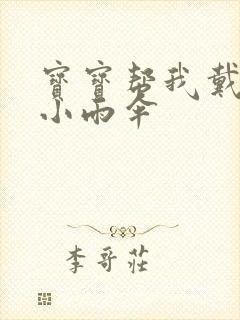 寶寶幫我戴
小雨傘
李哥莊